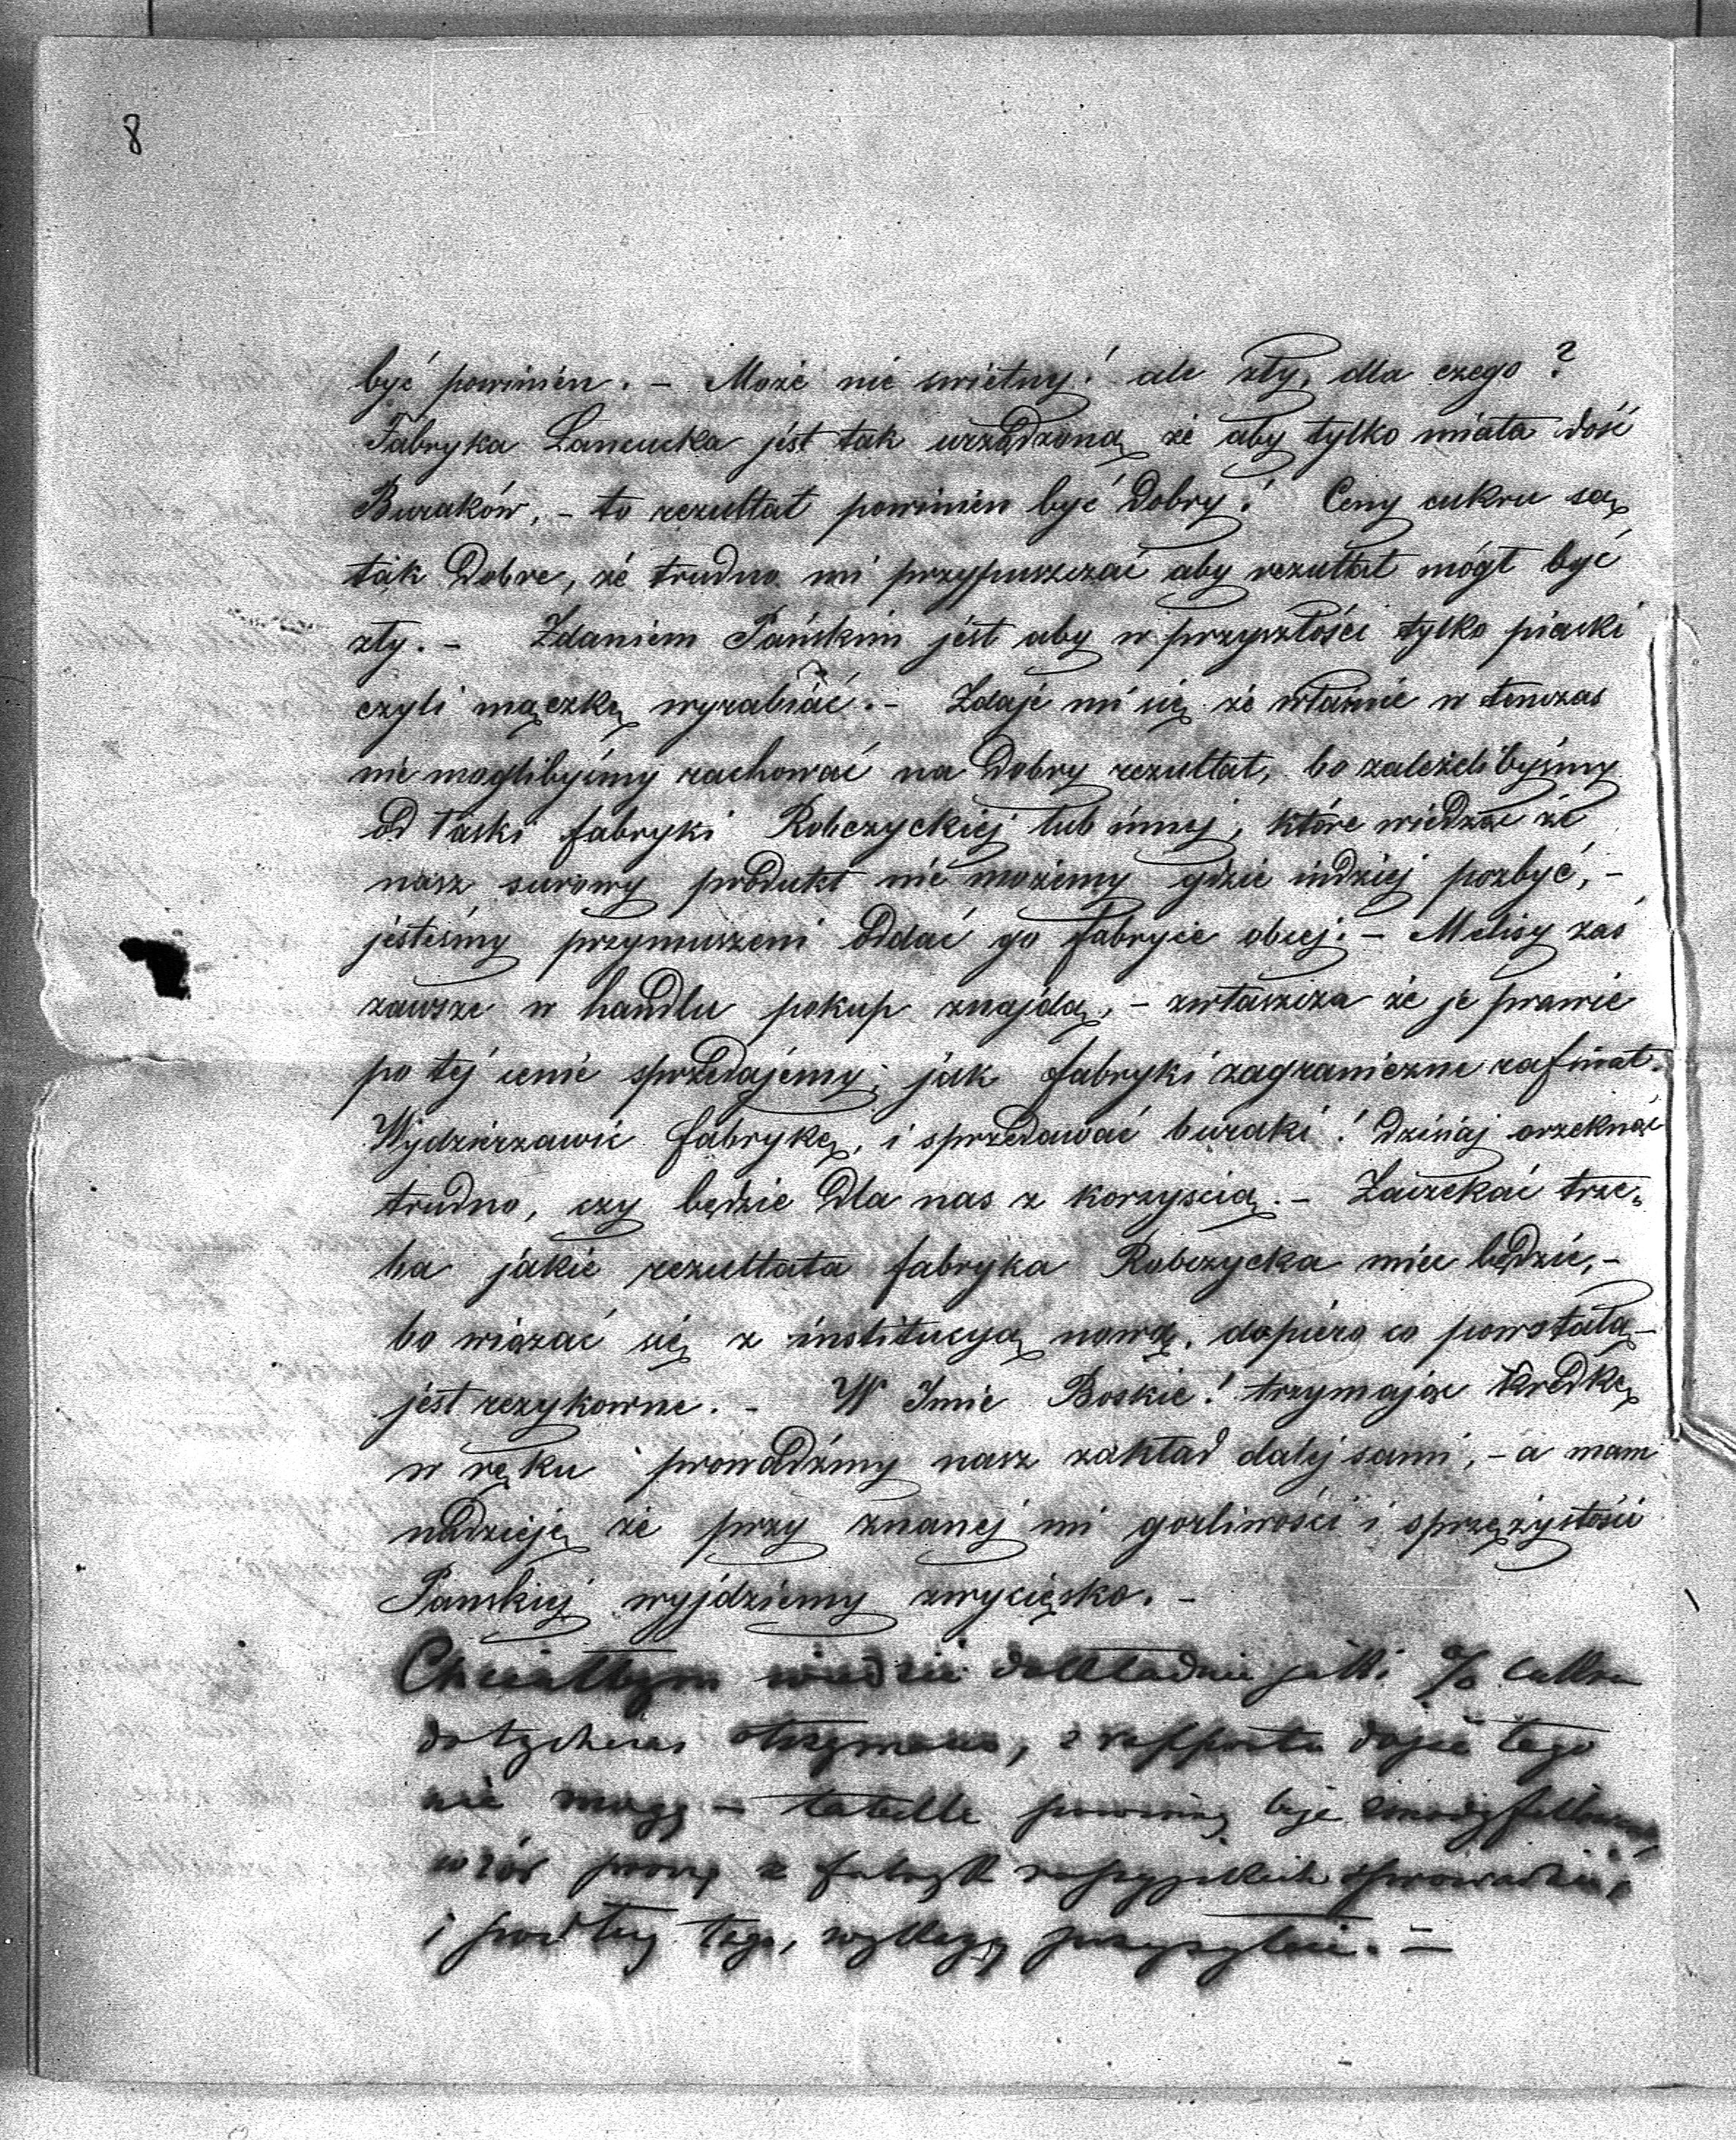 8
być powinien. – Może nie swietny! ale zły, dla czego?
Fabryka Lancucka jest tak urządzoną że aby tylko miała dość
Buraków, – to rezultat powinien być dobry! Ceny cukru są
tak dobre, że trudno mi przypuszczać aby rezultat mógł być
zły. – Zdaniem Pańskim jest aby w przyszłości tylko piaski
czyli mączkę wyrabiać. – Zdaje mi się że właśnie w tenczas
nie moglibyśmy rachować na dobry rezultat, bo zależelibyśmy
od łaski fabryki Robczyckiej lub innej, które wiedząc że
nasz surowy produkt nie możemy gdzie indziej pozbyć, –
jesteśmy przymuszeni oddać go fabryce obcej. – Melisy zaś
zawsze w handlu pokup znajdą, – zwłaszcza że je prawie
po tej cenie sprzedajemy, jak fabryki zagraniczne rafinat.
Wydzierzawić fabrykę, i sprzedawać buraki! Dzisiaj orzeknąć
trudno, czy będzie dla nas z korzyścią. – Zaczekać trze„
ba jakie rezultata fabryka Robczycka mieć będzie, –
bo wiązać się z institucyą nową, dopiero co powstałą –
jest rezykowne. – W Imie Boskie! trzymając kredkę
w ręku prowadźmy nasz zakład dalej sami, – a mam
nadzieję że przy znanej mi gorliwości i sprężystości
Panskiej wyjdziemy zwycięsko. –
Chciałbym wiedzieć dokładnie jaki % cukru
dotychczas otrzymano, z rapportu dojść tego
nie mogę – tabelle powinny być
wzór proszę z fabryk sprowadzić,
i podług tego, wykazy przysyłać. –